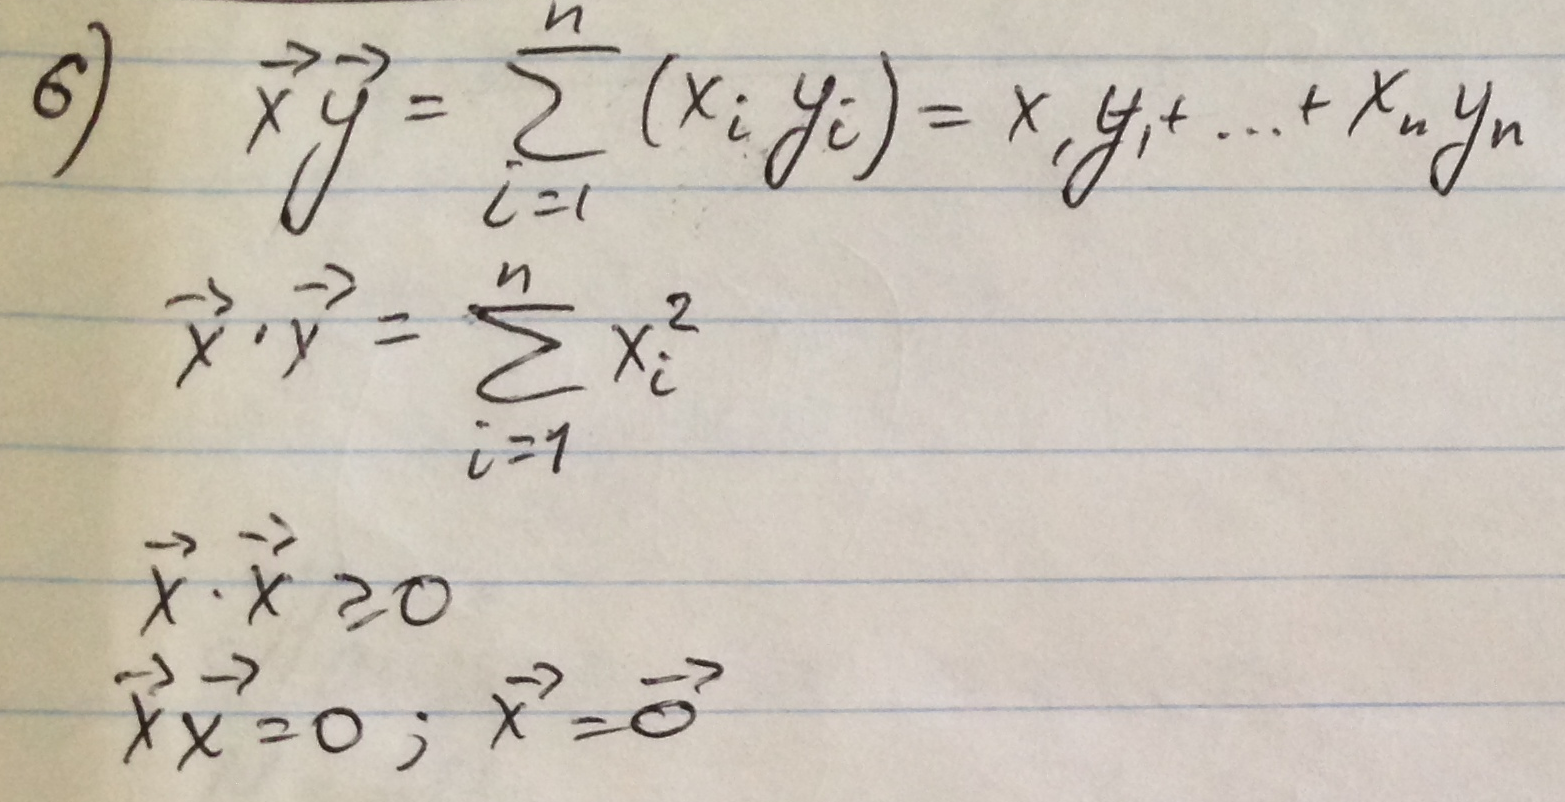 б) x⃗ y⃗ = ∑ⁿᵢ₌₁ (xᵢ yᵢ) = x₁y₁ + ... + xₙyₙ
x⃗ · x⃗ = ∑ⁿᵢ₌₁ xᵢ²
x⃗ · x⃗ ≥ 0
x⃗ x⃗ = 0 ; x⃗ = 0⃗